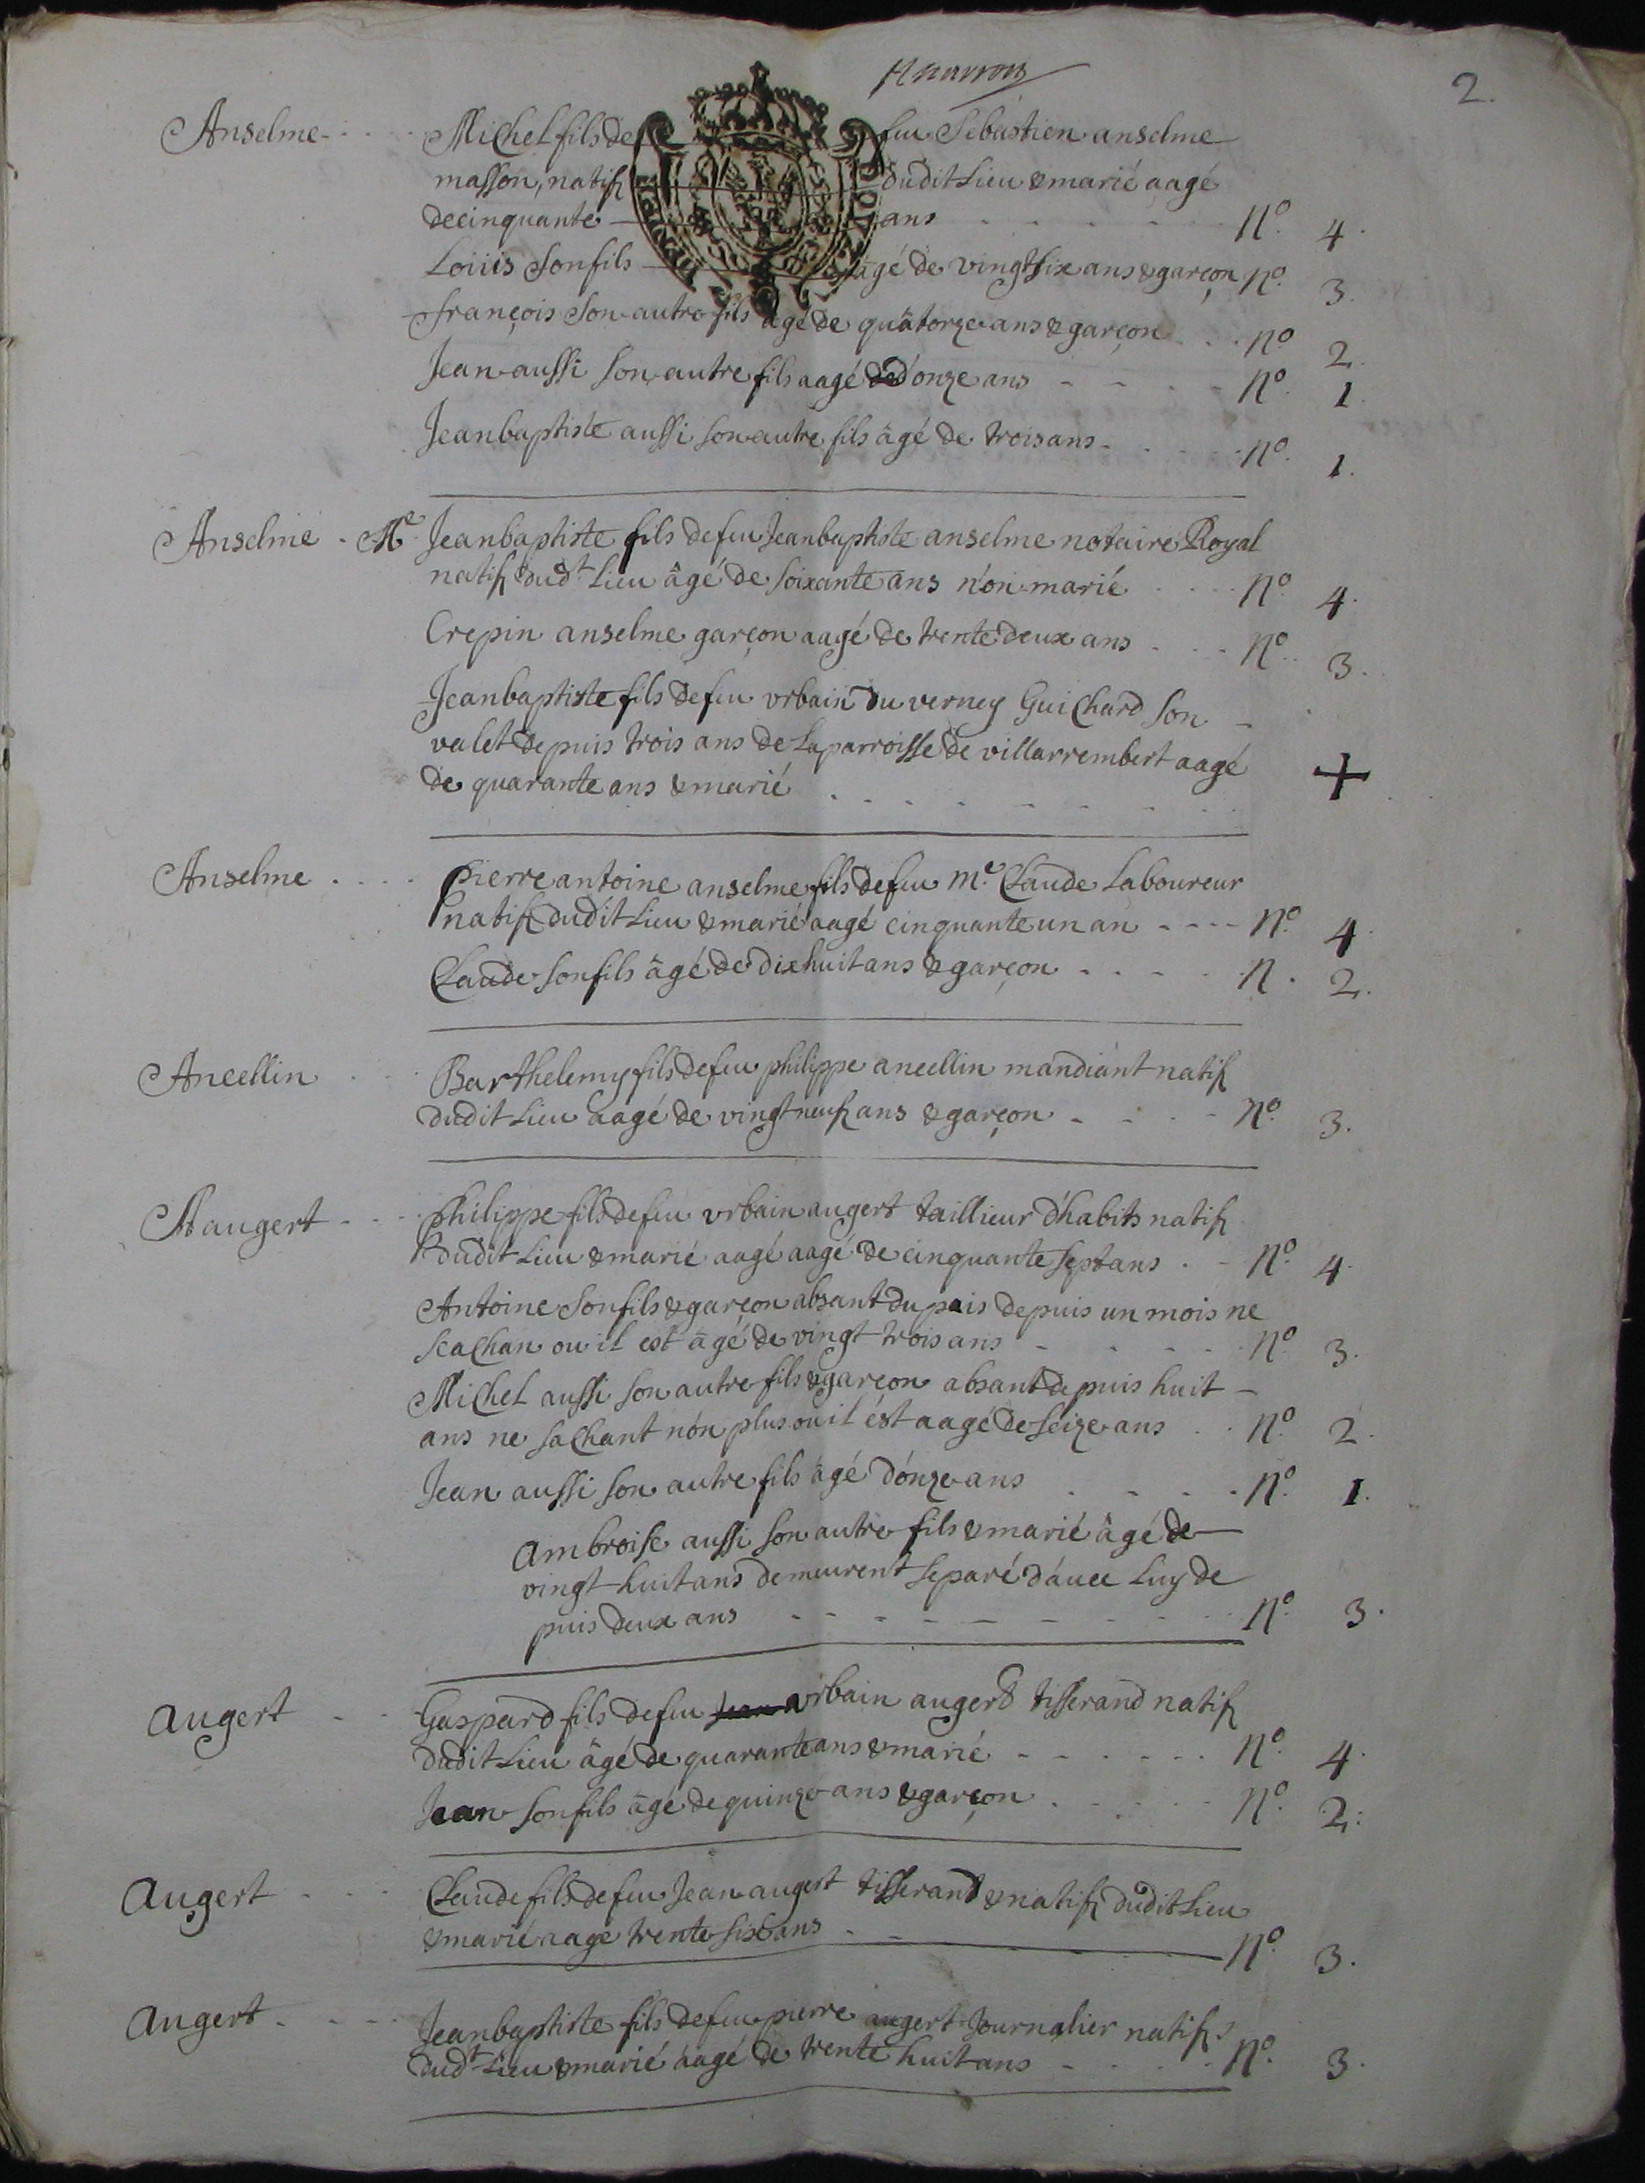 2.
Anselme - - - Michel fils de feu Sebastien anselme
masson, natif dudit Lieu & marié aagé
de cinquante ans - - - N.o 4.
Loüis son fils âgé de vingt six ans & garçon N.o 3.
françois son autre fils âgé de quatorze ans & garçon - - N.o 2.
Jean aussi son autre fils aagé d'onze ans - - - - N.o 1.
Jeanbaptiste aussi son autre fils âgé de trois ans - - - N.o 1.
Anselme - Me Jeanbaptiste fils de feu Jeanbaptiste anselme notaire Royal
natif dudt Lieu âgé de soixante ans nón marié - - - N.o 4.
Crepin anselme garçon aagé de trente deux ans - - - N.o 3.
Jeanbaptiste fils de feu vrbain du verney Guichard son
valet depuis trois ans de La parroisse de villarrembert aagé
de quarante ans & marié - - - - - - - +
Anselme - - - Pierre antoine anselme fils de feu m.e Claude Laboureur
natif dudit Lieu & marié aagé cinquante un an - - - - N.o 4.
Claude son fils âgé de dix huit ans & garçon - - - - N. 2.
Ancellin - - - Barthelemy fils de feu philippe ancellin mandiant natif
dudit Lieu aagé de vingt neuf ans & garçon - - - - N.o 3.
Augert - - - philippe fils de feu vrbain augert taillieur d'habits natif
dudit Lieu & marié aagé aagé de cinquante sept ans - - N.o 4.
Antoine son fils & garçon absant du païs depuis un mois ne
scachan ou il est âgé de vingt trois ans - - - - N.o 3.
Michel aussi son autre fils & garçon absant depuis huit
ans ne sachant nón plus ou il ést aagé de seize ans - - N.o 2.
Jean aussi son autre fils âgé d'ónze ans - - - - N.o 1.
Ambroise aussi son autre fils & marié âgé de
vingt huit ans demeurent separé d'auec Luy de
puis deux ans - - - - - - - - N.o 3.
Augert - - Gaspard fils de feu Jean vrbain augert tisserand natif
dudit Lieu âgé de quarante ans & marié - - - - - N.o 4.
Jean son fils âgé de quinze ans & garçon - - - - - N.o 2.
Augert - - - Claude fils de feu Jean augert tisserand & natif dudit Lieu
& marié aagé trente six ans - - N.o 3.
Augert - - - Jeanbaptiste fils de feu pierre augert Journalier natif
dudt Lieu & marié aagé de trente huit ans - - - - N.o 3.